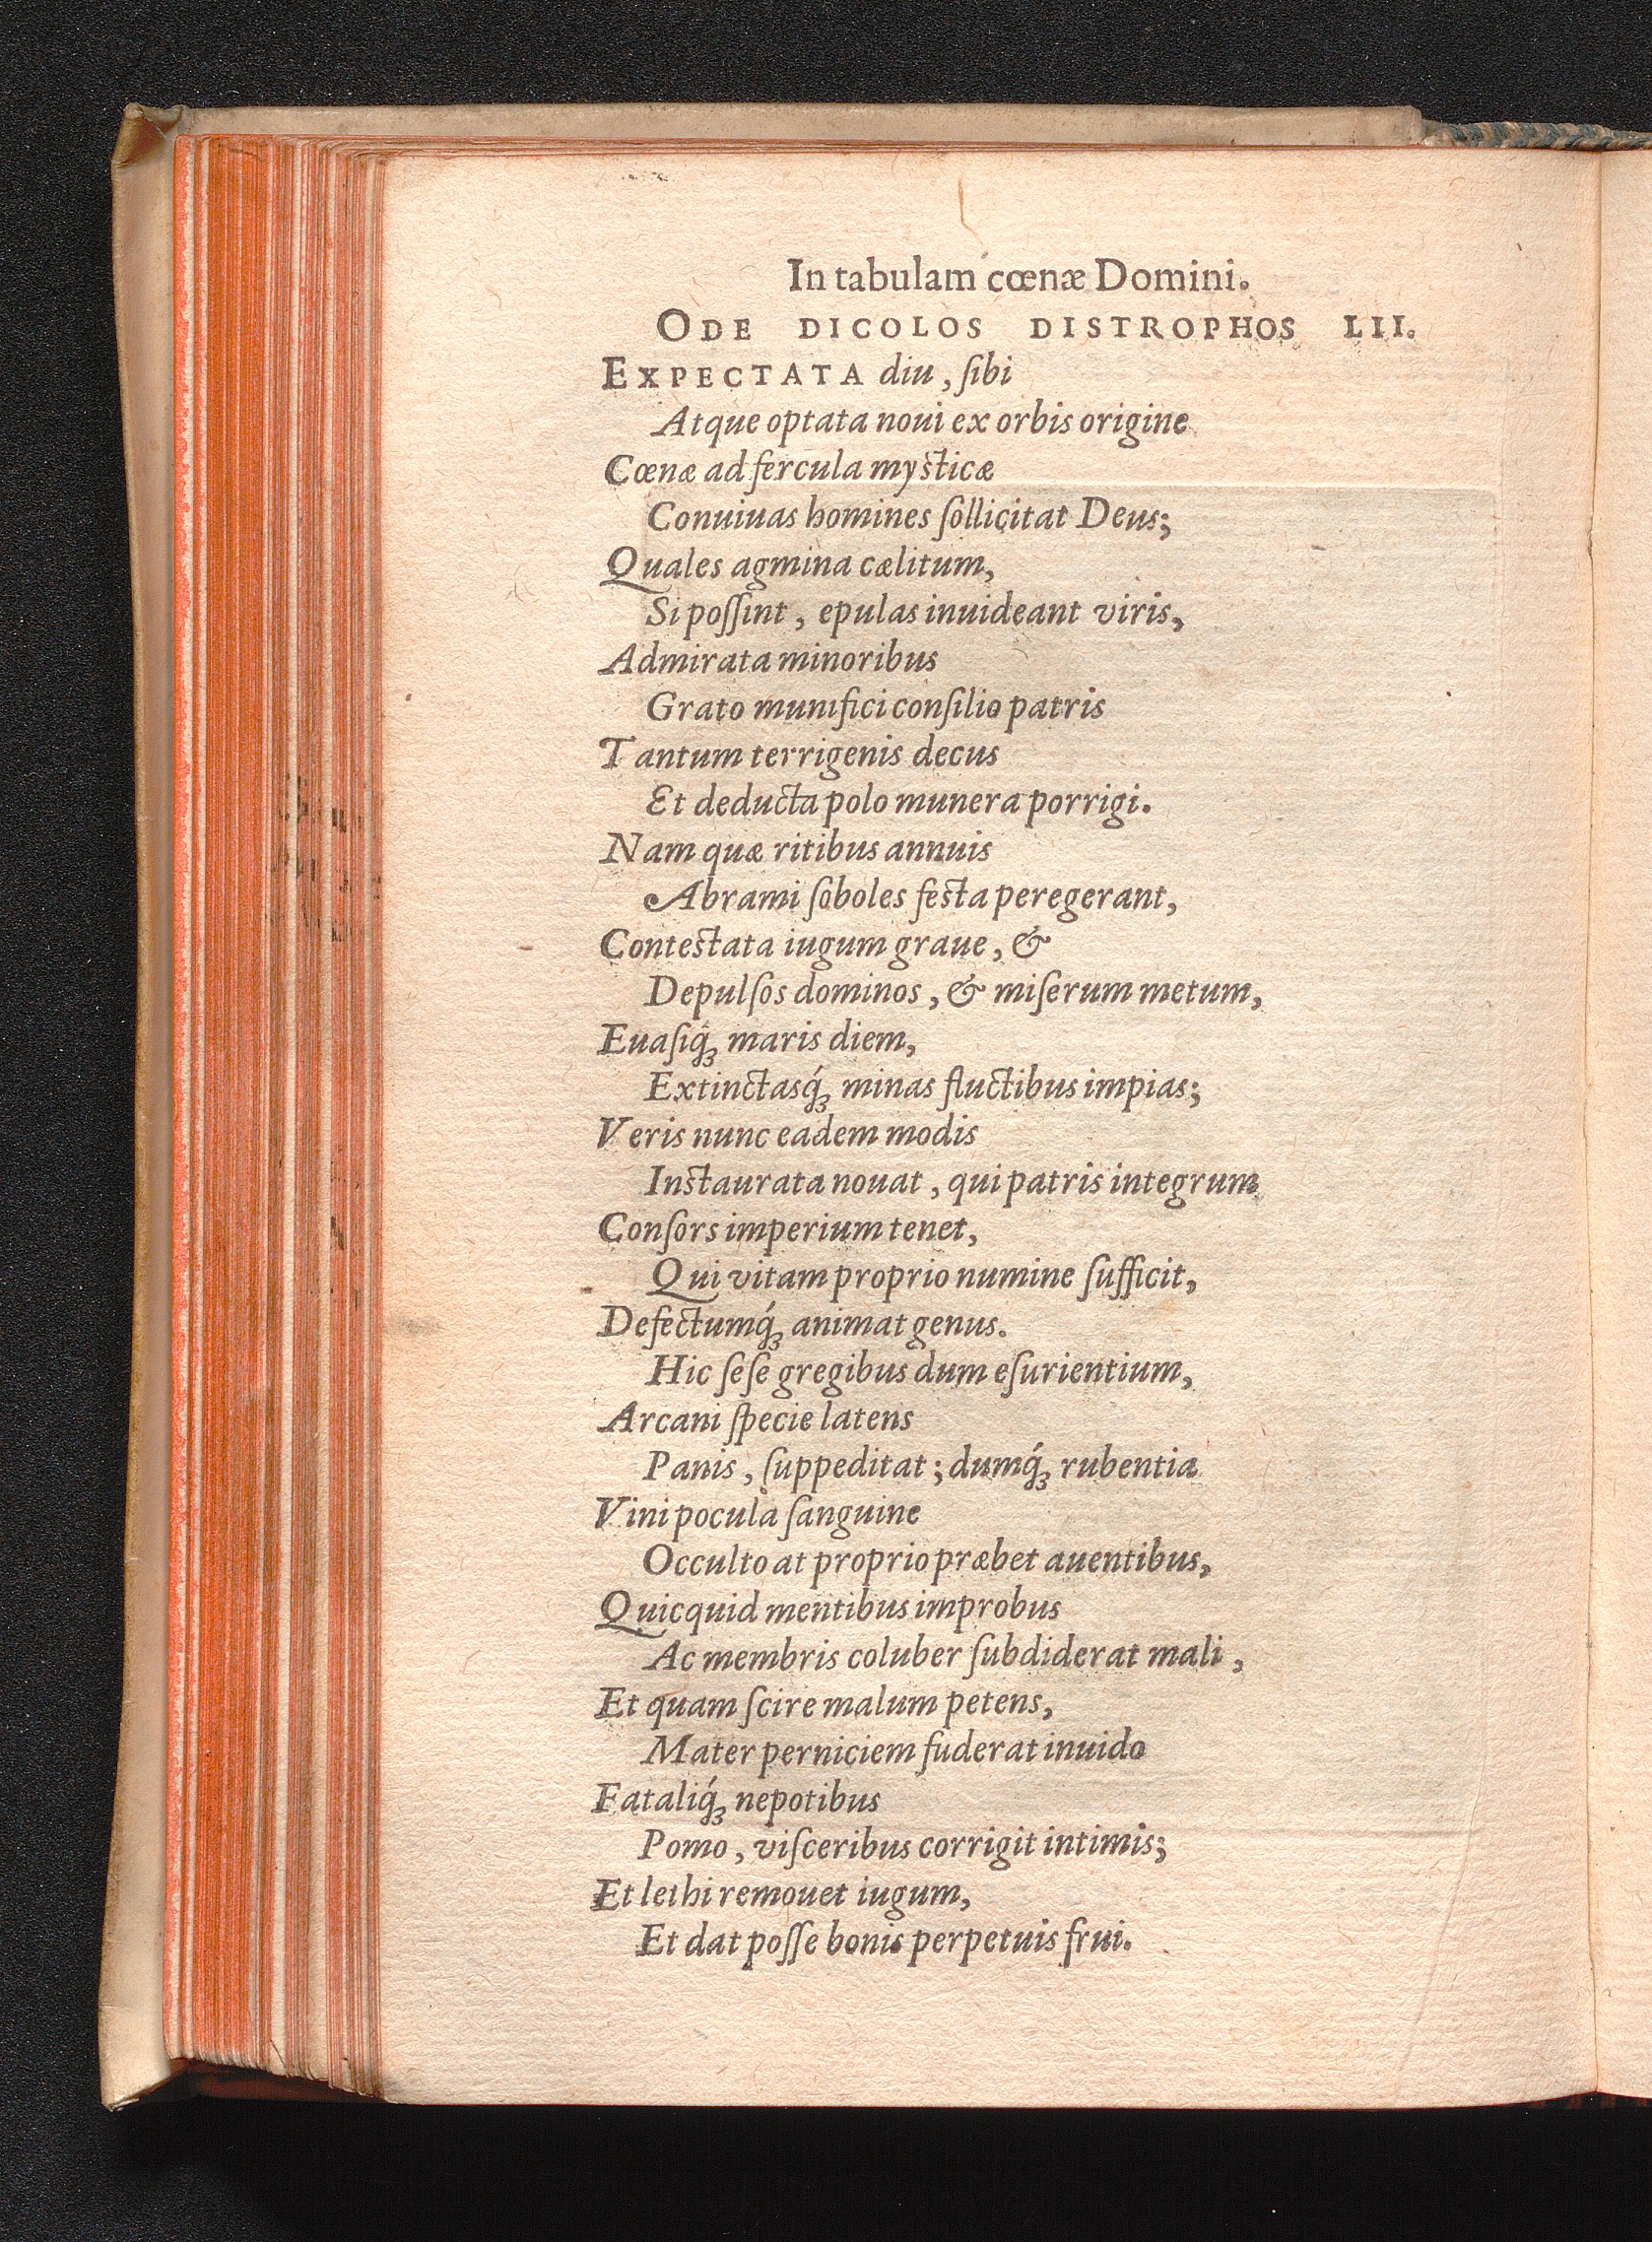 In tabulam cœnæ Domini.
ODE DICOLOS DISTROPHOS LII.
EXPECTATA diu, ſibi
Atque optata noui ex orbis origine
Cœnæ ad fercula mysticæ
Conuiuas homines ſollicitat Deus;
Quales agmina cælitum,
Si poſſint, epulas inuideant viris,
Admirata minoribus
Grato munifici conſilio patris
Tantum terrigenis decus
Et deducta polo munera porrigi.
Nam quæ ritibus annuis
Abrami ſoboles festa peregerant,
Contestata iugum graue, &
Depulſos dominos, & miſerum metum,
Euaſiq́ꝫ maris diem,
Extinctasq́ꝫ minas fluctibus impias;
Veris nunc eadem modis
Instaurata nouat, qui patris integrum
Conſors imperium tenet,
Qui vitam proprio numine ſufficit,
Defectumq́ꝫ animat genus.
Hic ſeſe gregibus dum eſurientium,
Arcani ſpecie latens
Panis, ſuppeditat; dumq́ꝫ rubentia
Vini pocula ſanguine
Occulto at proprio præbet auentibus,
Quicquid mentibus improbus
Ac membris coluber ſubdiderat mali,
Et quam ſcire malum petens,
Mater perniciem fuderat inuido
Fataliq́ꝫ nepotibus
Pomo, viſceribus corrigit intimis;
Et lethi remouet iugum,
Et dat poſſe bonis perpetuis frui.